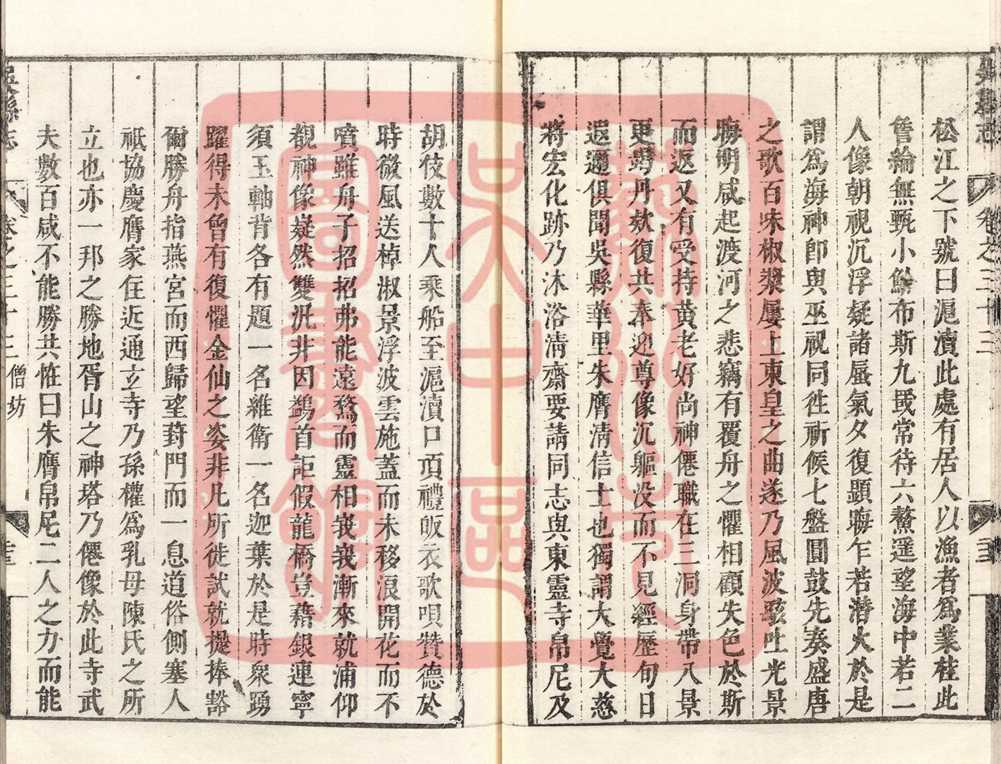 松江之下號曰滬瀆此處有居人以漁者爲業挂此
詹綸無甄小鮮布斯九罭常待六鼇遥望海中若二
人像朝視沉浮疑諸蜃氣夕復顯晦乍若潛火於是
謂爲海神卽與巫祝同徃祈候七盤圓鼓先奏盛唐
之歌百味椒漿屢上東皇之曲遂乃風波駭吐光景
晦明咸起渡河之悲竊有覆舟之懼相顧失色於斯
而返又有受持黄老好尚神僊職在三洞身帶八景
更竭丹欵復共奉迎尊像沉軀没而不見經歷旬日
遐邇俱聞吳縣華里朱膺清信士也獨謂大覺大慈
將宏化跡乃沐浴清齋要請同志與東靈寺帛尼及
胡伎數十人乘船至滬瀆口頂禮皈衣歌唄贊德於
時微風送棹淑景浮波雲施蓋而未移浪開花而不
噴雖舟子招招弗能遠騖而靈相峩峩漸來就浦仰
覩神像嶷然雙汎井因鷁首詎假龍橋豈藉銀連寧
須玉軸背各有題一名維衛一名迦葉於是時衆踴
躍得未曾有復懼金仙之姿非凡所徙試就提捧豁
爾勝舟指燕宫而西歸望葑門而一息道俗側塞人
祇協慶膺家住近通立寺乃孫權爲乳母陳氏之所
立也亦一邦之勝地胥山之神塔乃僊像於此寺武
夫數百咸不能勝共恠曰朱膺帛尼二人之力而能
吳縣志
卷之三十三
僧坊